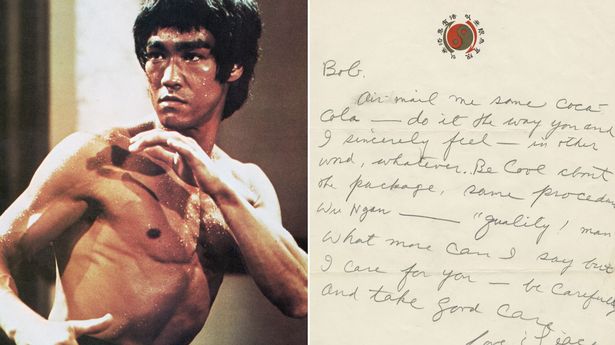 Bob.
Air mail me some Coca-
Cola — do it the way you and
I sincerely feel — in other
word, whatever. Be Cool about
the package, same procedur
Wu Ngan —— "Quality! man
What more can I say but
I care for you — be carefully
and take good care
Love